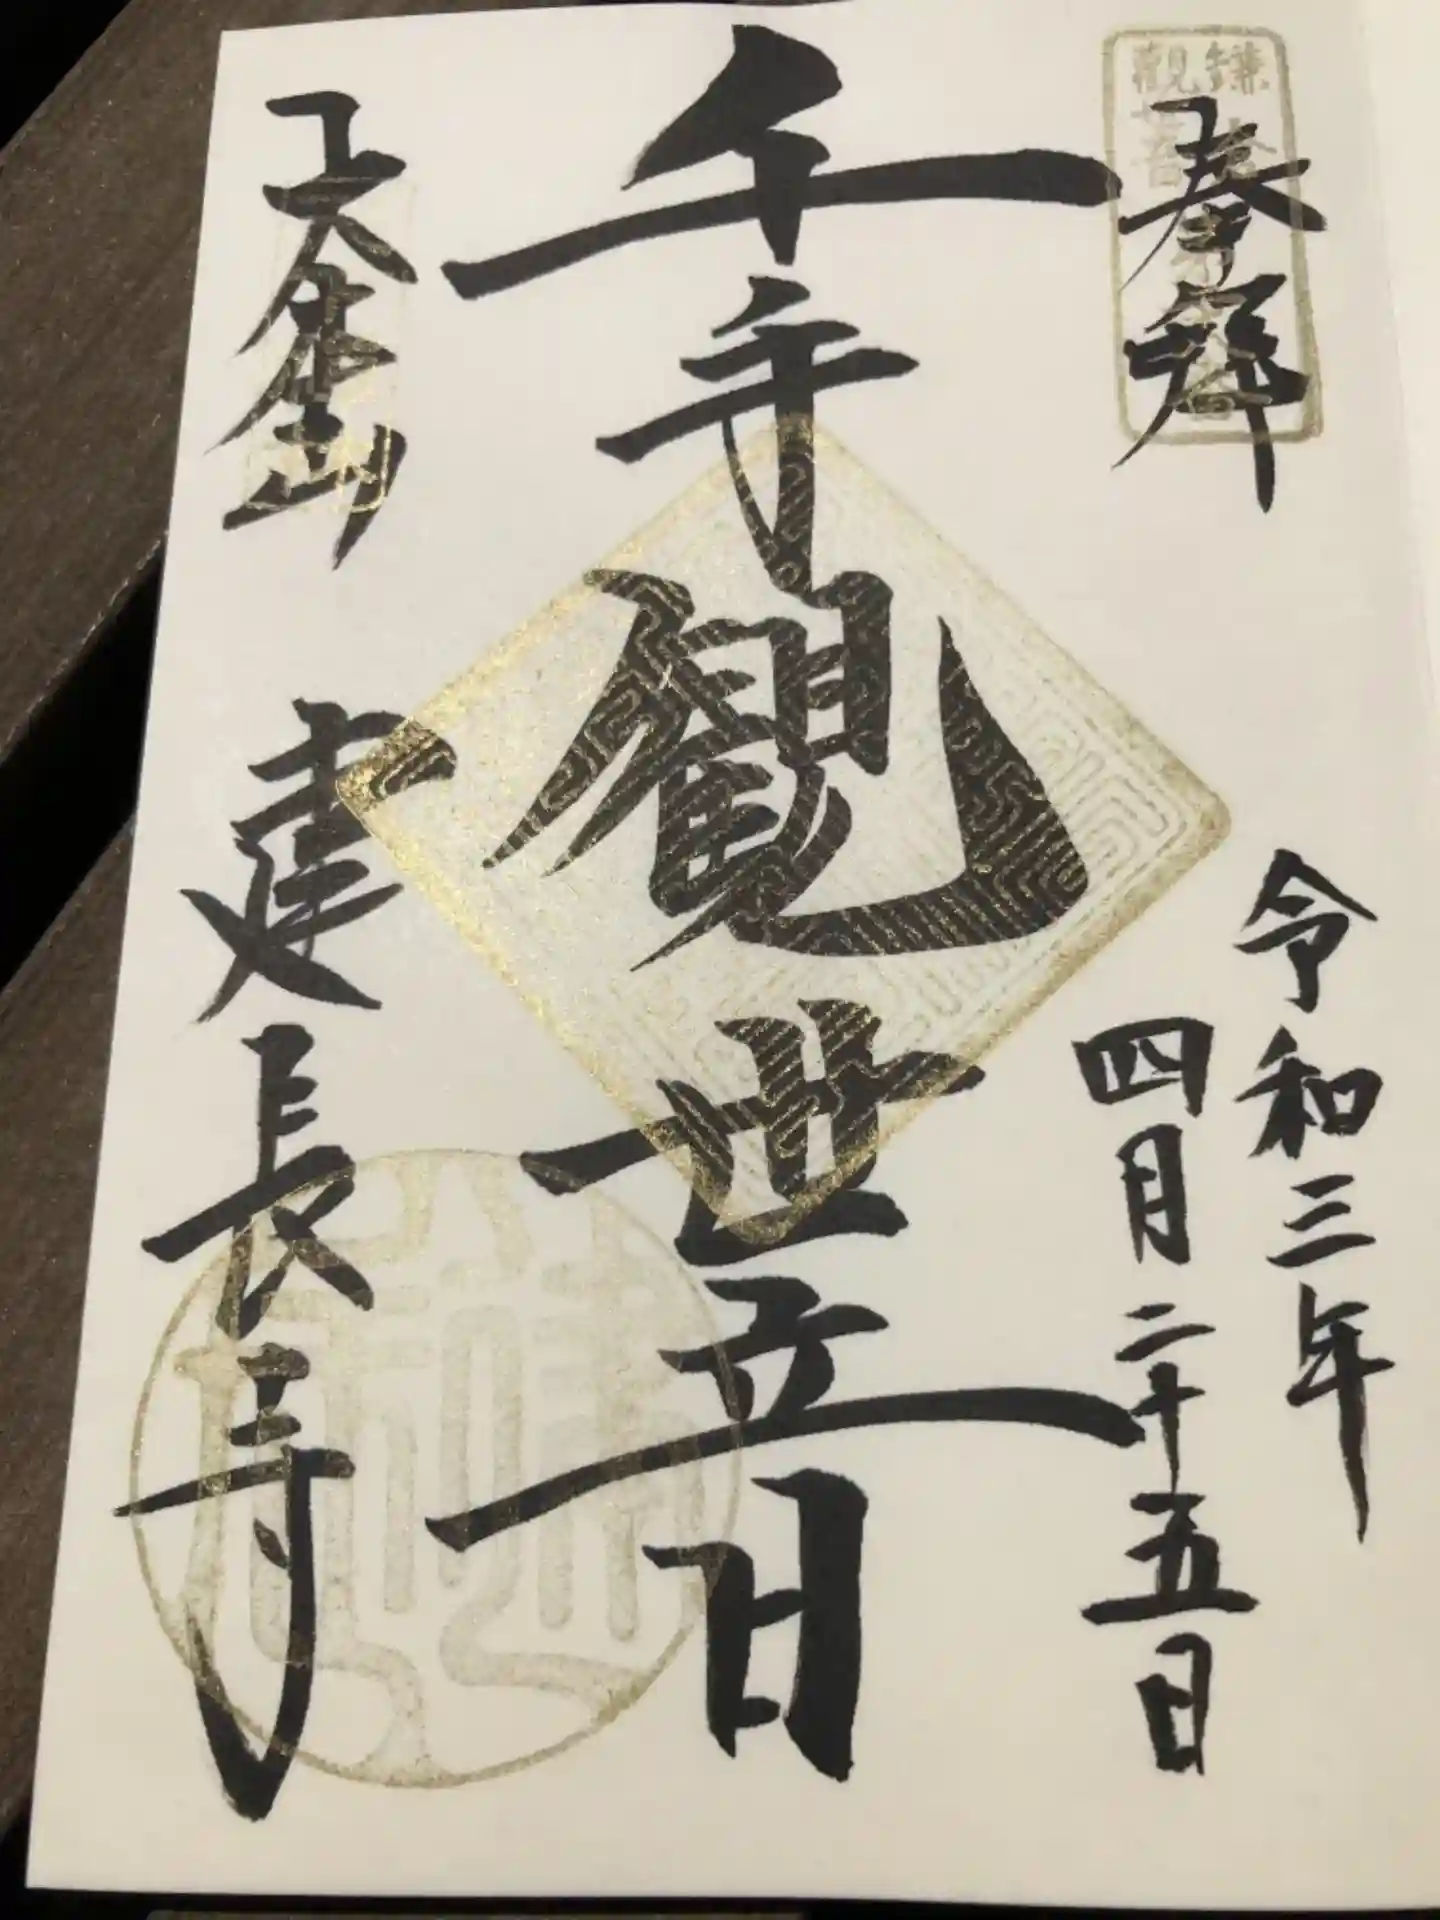 鎌倉
觀音
奉拝
令和三年
四月二十五日
千手観世音
建長寺